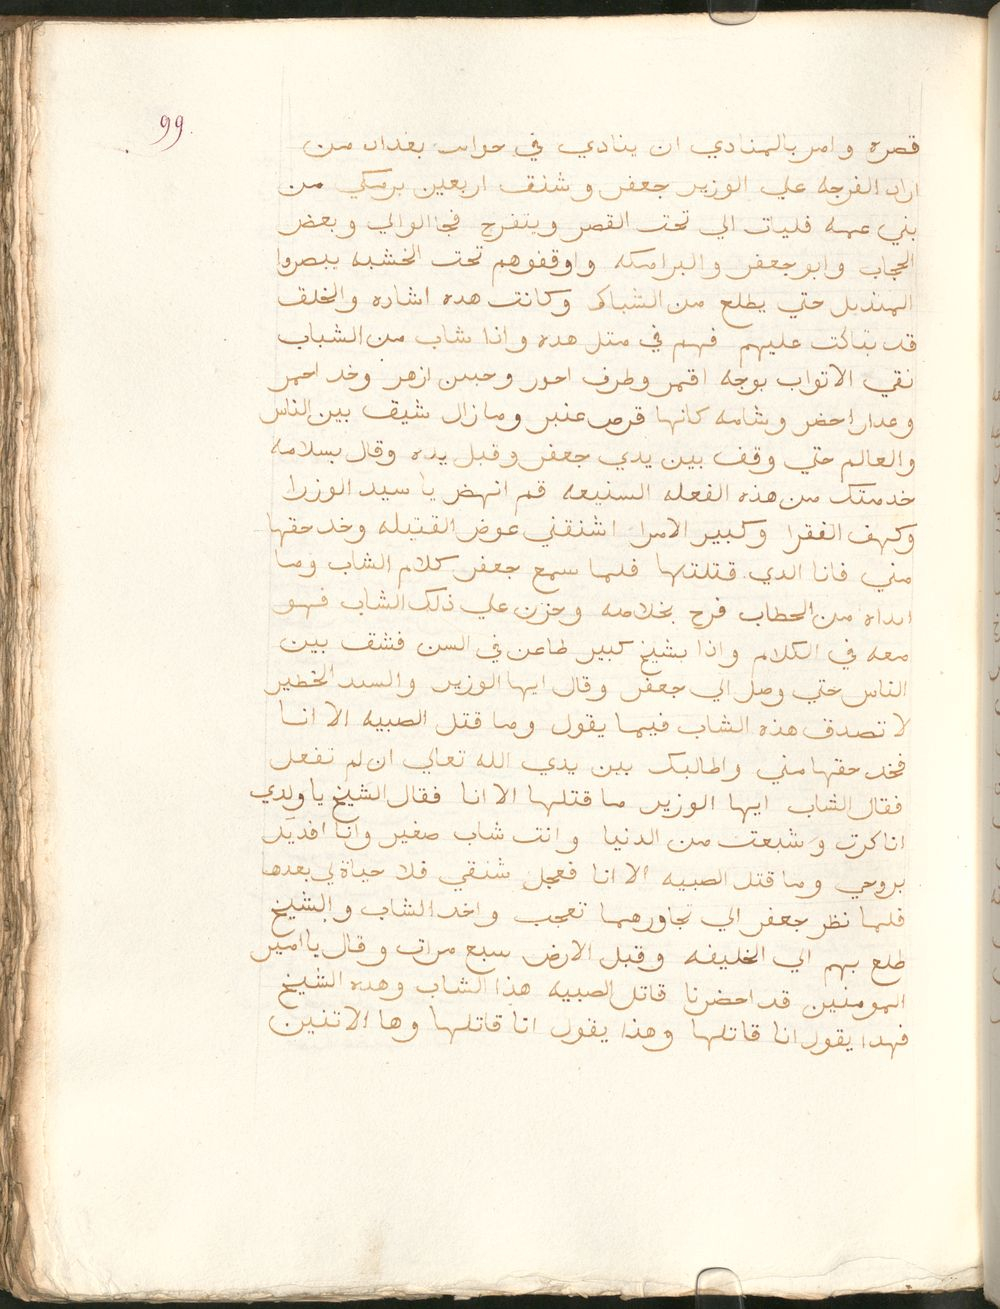 99
قصره وامر بالمنادي ان ينادي في جوانب بغداد من
اراد الفرجه علي الوزير جعفر وشنق اربعين برمكي من
بني عمه فليات الي تحت القصر ويتفرج فجا الوالي وبعض
الحجاب وابو جعفر والبرامكه واوقفوهم تحت الخشبه يبصروا
المنديل حتي يطلع من الشباك وكانت هده اشاره والخلق
قد تباكت عليهم فهم في متل هده واذا شاب من الشباب
نقي الاتواب بوجه اقمر وطرف احور وجبين ازهر وخد احمر
وعدار احضر وشامه كانها قرص عنبر وما زال شيق بين الناس
والعالم حتي وقف بين يدي جعفر وقبل يده وقال بسلامه
خدمتك من هذه الفعله السنيعه قم انهض يا سيد الوزرا
وكهف الفقرا وكبير الامرا اشنقني عوض القتيله وخد حقها
مني فانا الدي قتلتها فلما سمع جعفر كلام الشاب وما
ابداه من الخطاب فرح بخلاصه وحزن علي ذلك الشاب فهو
معه في الكلام واذا بشيخ كبير طاعن في السن فشق بين
الناس حتي وصل الي جعفر وقال ايها الوزير والسيد الخطير
لا تصدق هذه الشاب فيما يقول وما قتل الصبيه الا انا
فخد حقها مني واطالبك بين يدي الله تعالي ان لم تفعل
فقال الشاب ايها الوزير ما قتلها الا انا فقال الشيخ يا ولدي
انا كرت وشبعت من الدنيا وانت شاب صغير وانا افديك
بروحي وما قتل الصبيه الا انا فعجل شنقي فلا حياة لي بعدها
فلما نظر جعفر الي تجاورهما تعجب واخد الشاب والشيخ
طلع بهم الي الخليفه وقبل الارض سبع مرات وقال يا امير
المومنين قد احضرنا قاتل الصبيه هذا الشاب وهده الشيخ
فهدا يقول انا قاتلها وهذا يقول انا قاتلها وها الاتنين